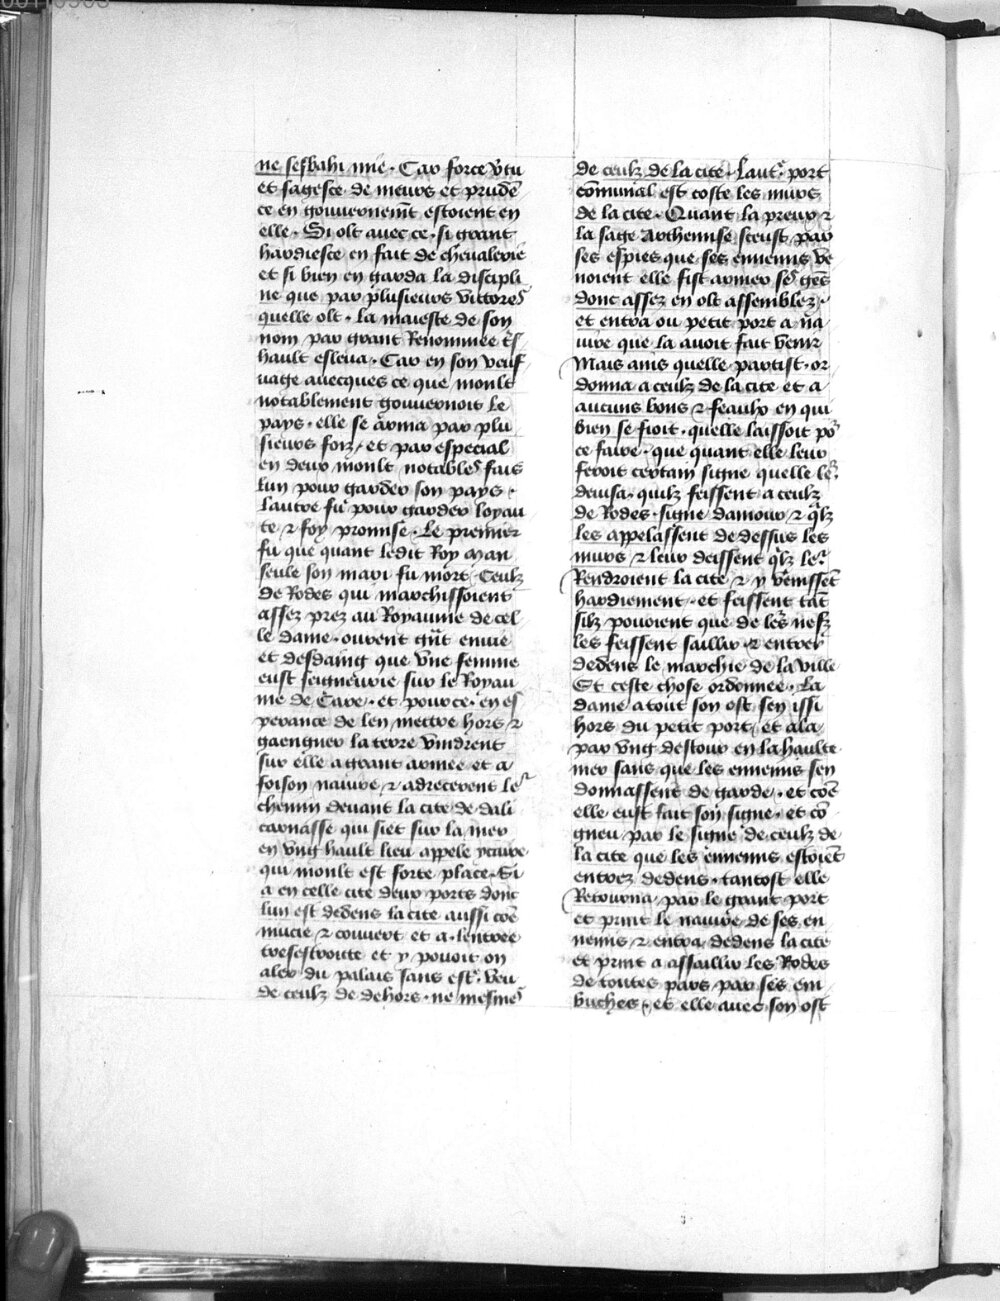 ne sesbahi mie. Car force vtu
et sagesce de meurs et prudẽ
ce en gouuernemt estoient en
elle. Si olt auec ce. si grant
hardiesce en fait de cheualerie
et si bien en garda la discipli
ne que par plusieurs victores
quelle olt. la maieste de son
nom par grant Renommee ts
hault esleua. Car en son veuf
uage auecques ce que moult
notablement gouuernoit le
pays. elle se arma par plu
sieurs foiz. et par especial
en deux moult notables fais
lun pour garder son pays.
lautre fu pour garder loyau
te ⁊ foy promise. Le premier
fu que quant ledit Roy Man
seule son mari fu mort. Ceulz
de Rodes qui marchissoient
assez prez au Royaume de cel
le dame. ourent gnt enuie
et desdaing que vne femme
eust seigneurie sur le Royau
me de Care. et pour ce. en es
perance de len mectre hors ⁊
gaengner la terre vindrent
sur elle a grant armee et a
foison nauire ⁊ adrecerent le
chemin deuant la cite de dali
carnasse qui siet sur la mer
en vng hault lieu appele ycaire
qui moult est forte place. Si
a en celle cite deux ports dont
lun est dedens la cite aussi cõe
mucie ⁊ couuert et a lentree
tresestroicte et y pouoit on
aler du palais sans estr̃ veu
de ceulz de dehors. ne mesmes
de ceulz de la cite. Laut̃ port
cõmunal est coste les murs
de la cite. Quant la preux ⁊
la sage Arthemise sceust par
ses espies que ses ennemis ve
noient elle fist armer ses gẽs
dont assez en olt assemblez.
et entra ou petit port a na
uire que la auoit fait venir
Mais ains quelle partist. or
donna a ceulz de la cite et a
aucuns bons ⁊ feaulx en qui
bien se fioit. quelle laissoit po
ce faire. que quant elle leur
feroit certain signe quelle le
deuisa. quilz feissent a ceulz
de Rodes. signe damour ⁊ qlz
les appelassent de dessus les
murs ⁊ leur deissent qlz le
Rendroient la cite ⁊ y venissẽt
hardiement. et feissent tãt
silz pouoient que de les nefz
les feissent saillir ⁊ entrer
dedens le marchie de la ville
Et ceste chose ordonnee. La
dame a tout son ost sen issi
hors du petit port. et ala
par vng destour en la haulte
mer sans que les ennemis sen
donnassent de garde. et cõe
elle eust fait son signe. et cõ
gneu par le signe de ceulz de
la cite que les ennemis estoiẽt
entrez dedens. tantost elle
Retourna par le grant port
et prinst le nauire de ses en
nemis ⁊ entra dedens la cite
et prinst a assaillir les Rodes
de toutes pars par ses em
buches. et elle auec son ost